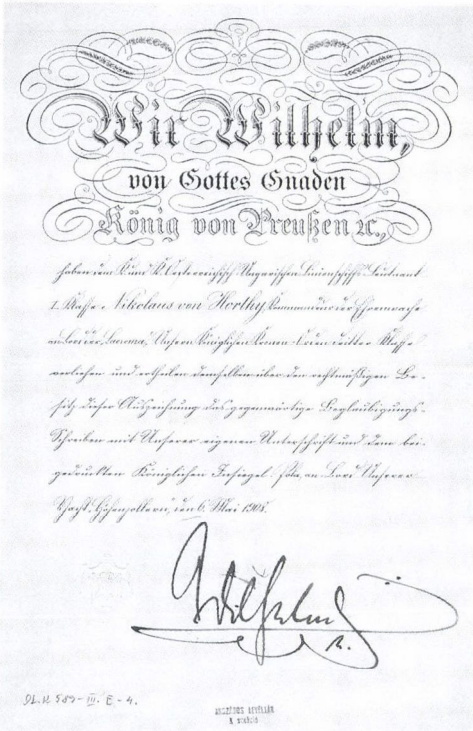 Wir Wilhelm,
von Gottes Gnaden
König von Preußen ꝛc.,
haben dem K. und K. Oesterreichisch-Ungarischen Linienschiffs-Lieutenant
I. Klasse Nikolaus von Horthy, Kommandeur der Ehrenwache
an Bord der Unseren Königlichen Kronen-Orden dritter Klasse
verliehen und ertheilen demselben über den rechtmäßigen Be-
sitz dieser Auszeichnung das gegenwärtige Beglaubigungs-
Schreiben mit Unserer eigenen Unterschrift und dem bei-
gedruckten Königlichen Insiegel. an Bord Unserer
Yacht „Hohenzollern“, den 6. Mai 1908.
Wilhelm
R.
OL. K 589-III. E-4.
ORSZÁGOS LEVÉLTÁR